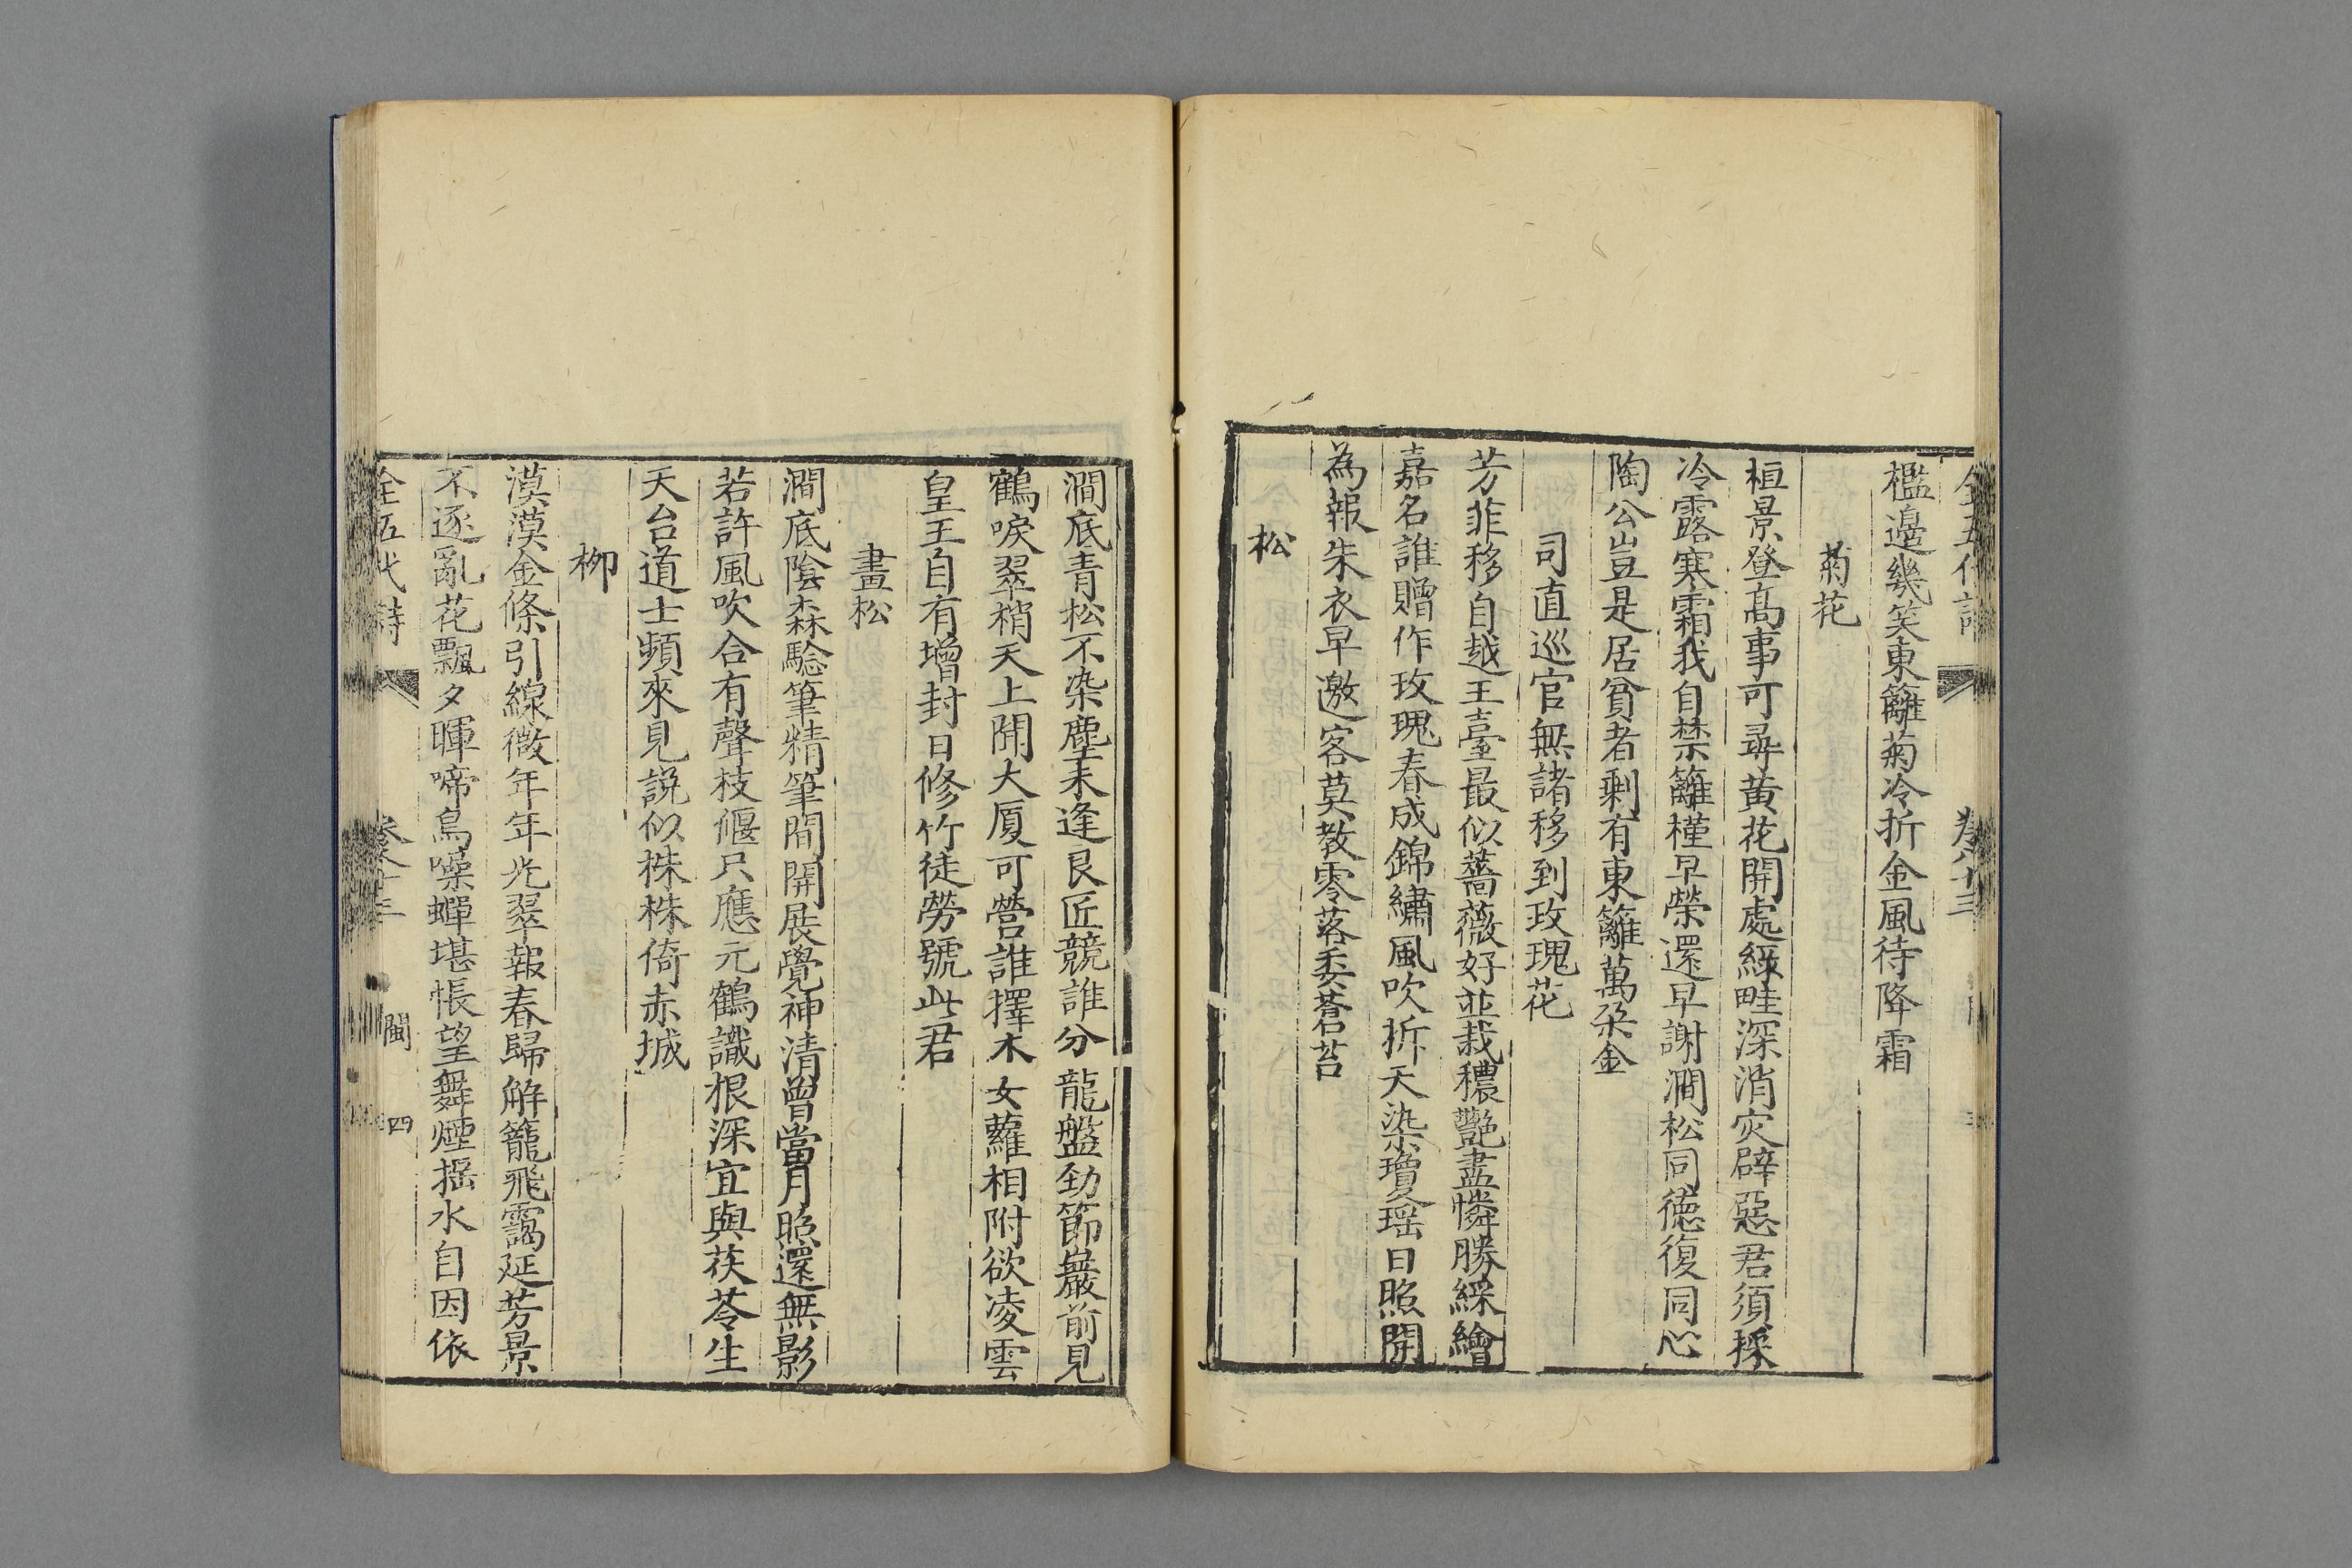 全五代詩 卷八十三
檻邊幾笑東籬菊冷折金風待降霜
菊花
桓景登高事可尋黄花開處綠畦深消灾辟惡君須採
冷露寒霜我自禁籬槿早榮還早謝澗松同德復同心
陶公豈是居貧者剩有東籬萬朶金
司直巡官無諸移到玫瑰花
芳菲移自越王臺最似薔薇好並栽穠艷盡憐勝綵繪
嘉名誰贈作玫瑰春成錦繡風吹折天染瓊瑤日照開
為報朱衣早邀客莫教零落委蒼苔
松
澗底青松不染塵未逢良匠競誰分龍盤勁節巖前見
鶴唳翠梢天上聞大厦可營誰擇木女蘿相附欲凌雲
皇王自有增封日修竹徒勞號此君
畫松
澗底陰森驗筆精筆間開展覺神清曾當月照還無影
若許風吹合有聲枝偃只應元鶴識根深宜與茯苓生
天台道士頻來見説似株株倚赤城
栁
漠漠金條引線微年年光翠報春歸解籠飛靄延芳景
不逐亂花飄夕暉啼鳥噪蟬堪悵望舞煙揺水自因依
全五代詩 卷八十三 閩 四